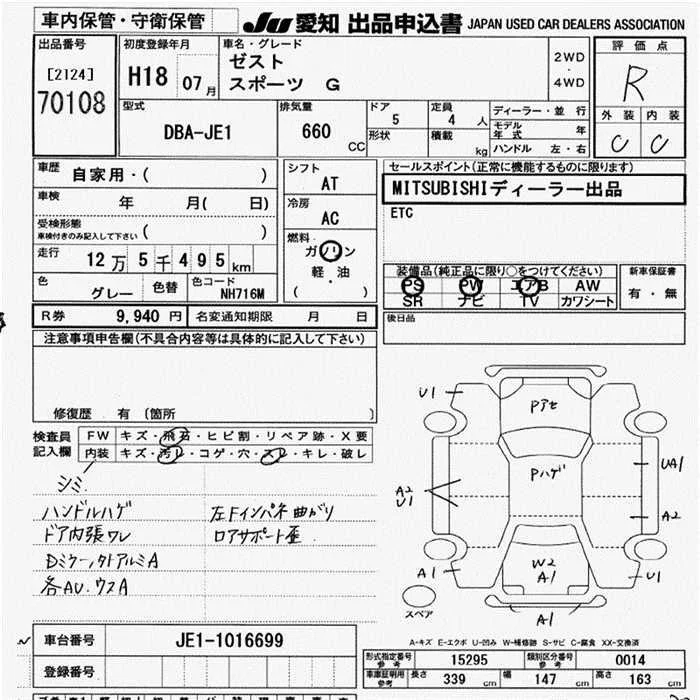 車内保管・守衛保管
JU 愛知 出品申込書 JAPAN USED CAR DEALERS ASSOCIATION
出品番号
[2124]
70108
初度登録年月
H18 07月
車名・グレード
ゼスト
スポーツ G
2WD
・
4WD
評価点
R
外装 内装
C C
型式
DBA-JE1
排気量
660
CC
ドア
5
定員
4 人
形状
積載
kg
ディーラー・並行
モデル年式 年
ハンドル 左・右
車歴
自家用・( )
車検
年 月( 日)
受検形態
車検付きのみ記入して下さい ( )
走行
12万5千495km
色
グレー
色替
色コード
NH716M
シフト
AT
冷房
AC
燃料
ガソリン
・
軽・油
( )
セールスポイント(正常に機能するものに限ります)
MITSUBISHIディーラー出品
ETC
装備品(純正品に限り○をつけてください)
PS PW エアB AW
SR ナビ TV カワシート
新車保証書
有・無
R券 9,940円 名変通知期限 月 日
後日品
注意事項申告欄(不具合内容等は具体的に記入して下さい)
修復歴 有 〔箇所 〕
検査員
記入欄
FW キズ・飛石・ヒビ割・リペア跡・X要
内装 キズ・汚レ・コゲ・穴・スレ・キレ・破レ
シミ
ハンドルハゲ
ドア内張ワレ
左Fインパネ曲がり
ロアサポート歪
各AU.ウスA
U1
Pアセ
Pハゲ
UA1
A2
U1
A2
A1
W2
A1
U1
A1
スペア
A-キズ E-エクボ U-凹み W-補修跡 S-サビ C-腐食 XX-交換済
車台番号 JE1-1016699
登録番号
型式指定番号
参考
15295
類別区分番号
参考
0014
車庫証明用
参考
長さ 339 cm 幅 147 cm 高さ 163 cm